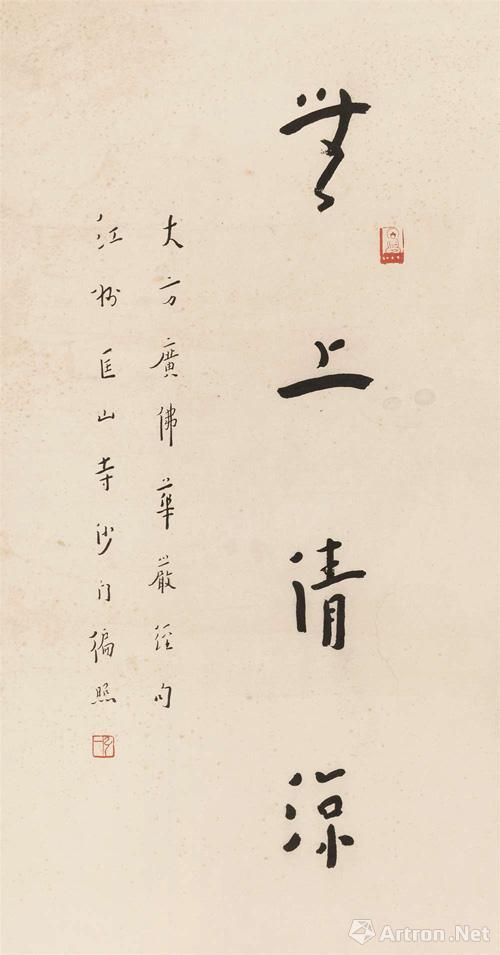 無上清涼
大方廣佛華嚴經句
江州匡山寺沙門徧照
Artron.Net